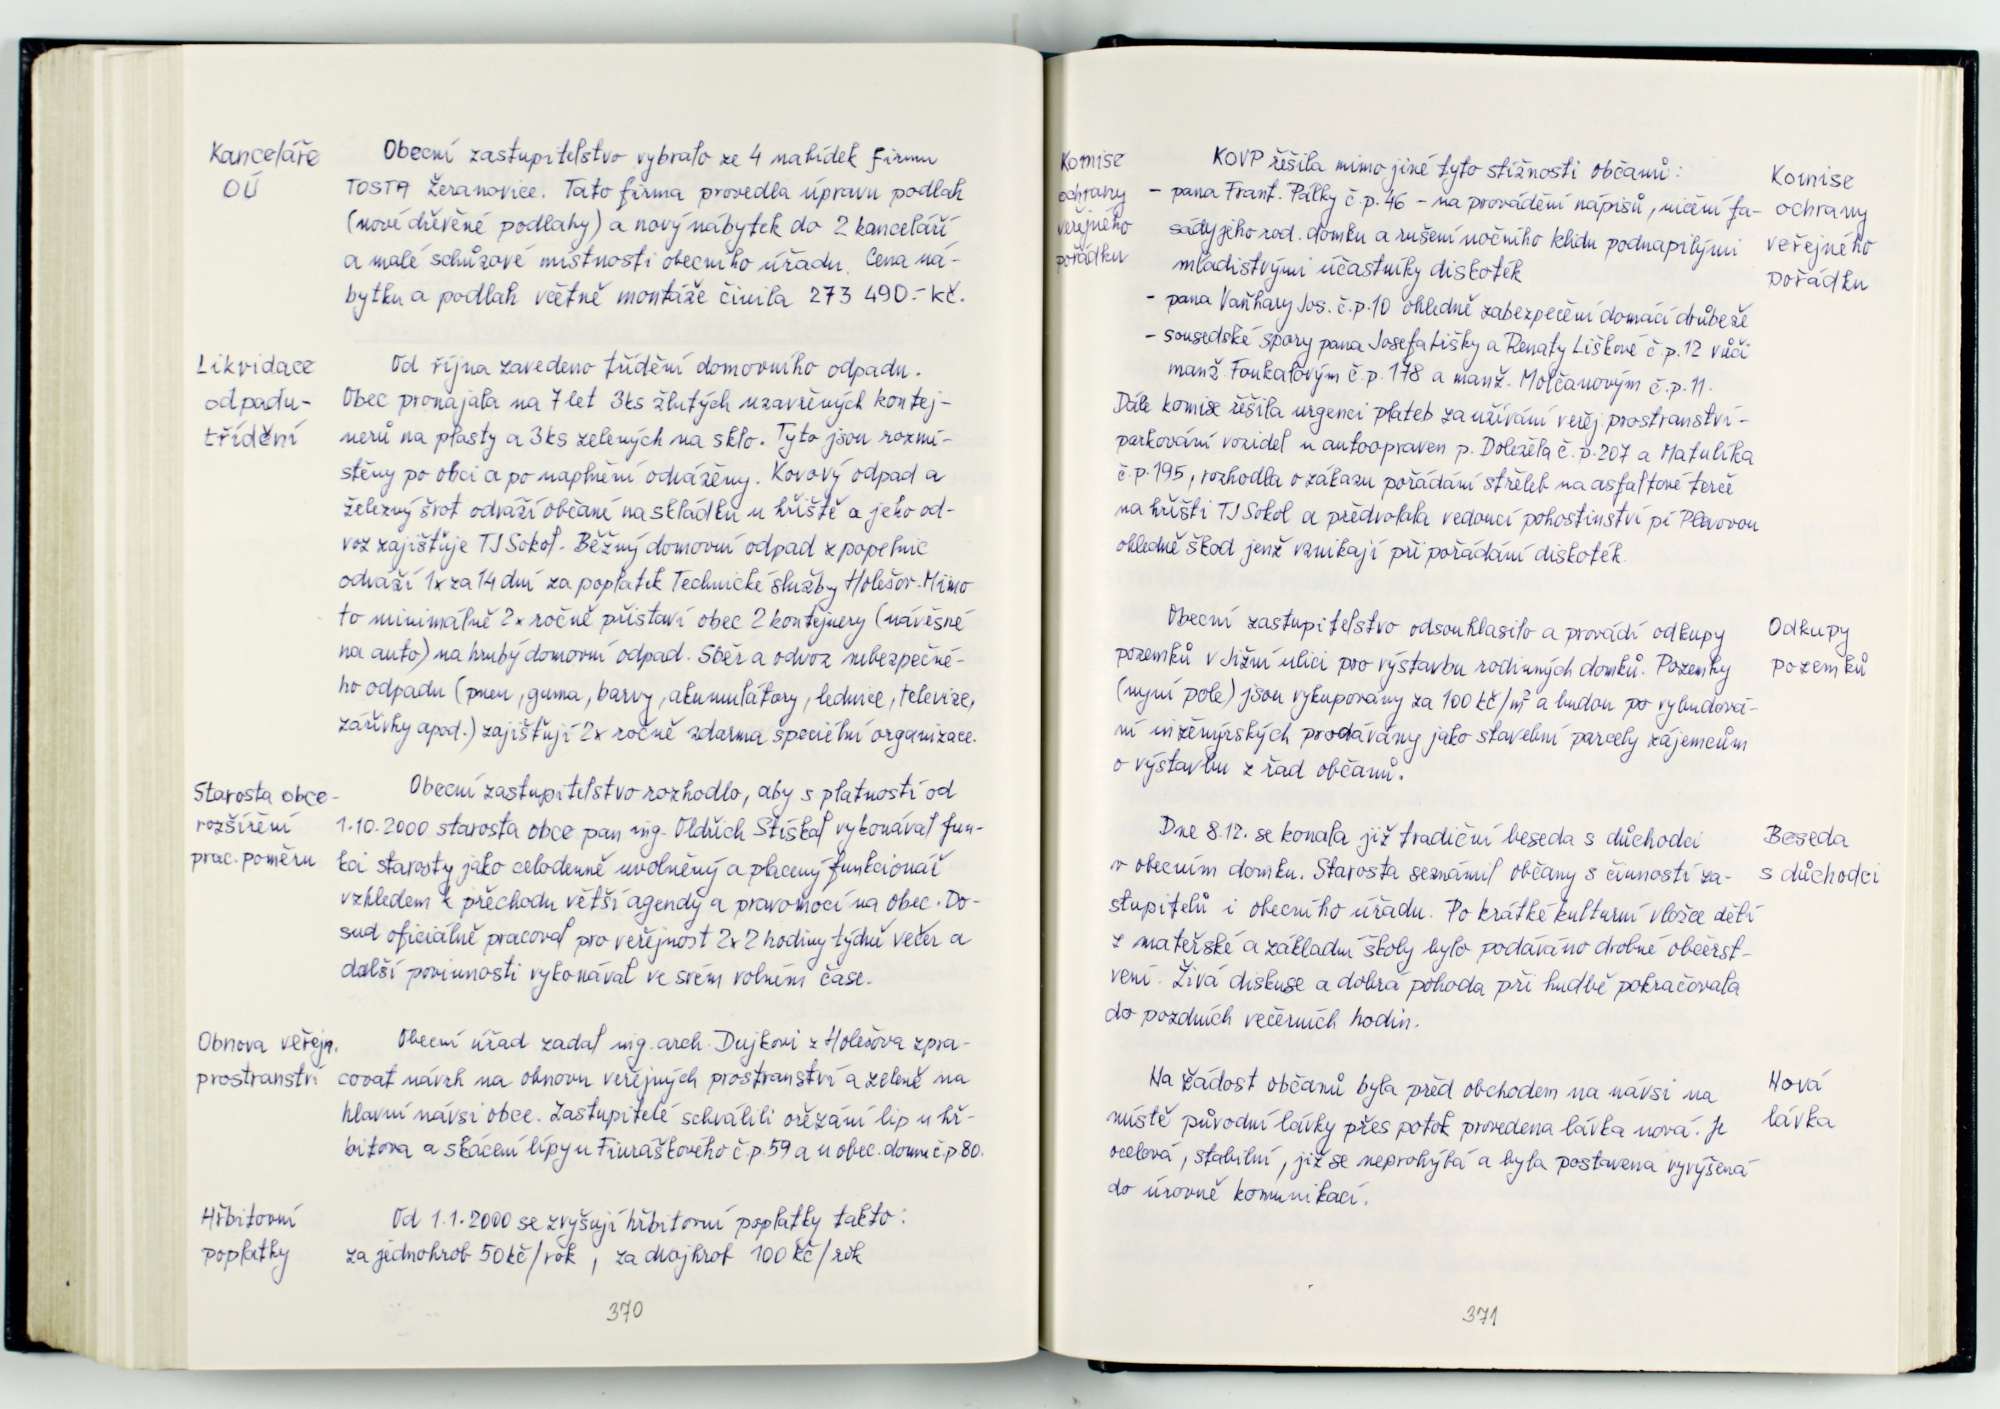 Kanceláře
OÚ
Obecní zastupitelstvo vybralo ze 4 nabídek firmu
TOSTA Žeranovice. Tato firma provedla úpravu podlah
(nové dřevěné podlahy) a nový nábytek do 2 kanceláří
a malé schůzové místnosti obecního úřadu. Cena ná-
bytku a podlah včetně montáže činila 273 490.- kč.
Likvidace
odpadu-
třídění
Od října zavedeno třídění domovního odpadu.
Obec pronajala na 7 let 3ks žlutých uzavřených kontej-
nerů na plasty a 3ks zelených na sklo. Tyto jsou rozmí-
stěny po obci a po naplnění odváženy. Kovový odpad a
železný šrot odváží občané na skládku u hřiště a jeho od-
voz zajišťuje TJ Sokol. Běžný domovní odpad z popelnic
odváží 1x za 14 dní za poplatek Technické služby Holešov. Mimo
to minimálně 2x ročně přistaví obec 2 kontejnery (návěsné
na auto) na hrubý domovní odpad. Sběr a odvoz nebezpečné-
ho odpadu (pneu, guma, barvy, akumulátory, lednice, televize,
zářivky apod.) zajišťují 2x ročně zdarma speciélní organizace.
Starosta obce-
rozšíření
prac. poměru
Obecní zastupitelstvo rozhodlo, aby s platností od
1.10.2000 starosta obce pan ing. Oldřich Stískal vykonával fun-
kci starosty jako celodenně uvolněný a placený funkcionář
vzhledem k přechodu větší agendy a pravomocí na obec. Do-
sud oficiálně pracoval pro veřejnost 2x2 hodiny týdně večer a
další povinnosti vykonával ve svém volném čase.
Obnova veřejn.
prostranství
Obecní úřad zadal ing. arch. Dujkovi z Holešova zpra-
covat návrh na obnovu veřejných prostranství a zeleně na
hlavní návsi obce. Zastupitelé schválili ořezání lip u hř-
bitova a skácení lípy u Fiuráškového č.p. 59 a u obec. domu č.p 80.
Hřbitovní
poplatky
Od 1.1.2000 se zvyšují hřbitovní poplatky takto:
za jednohrob 50 kč/rok, za dvojhrob 100 kč/rok
370
Komise
ochrany
veřejného
pořádku
KOVP řešila mimo jiné tyto stížnosti občanů:
- pana Frant. Pálky č.p. 46 - na provádění nápisů, ničení fa-
sády jeho rod. domku a rušení nočního klidu podnapilými
mladistvými účastníky diskoték
- pana Vaňhary Jos. č.p. 10 ohledně zabezpečení domácí drůbeže
- sousedské spory pana Josefa Lišky a Renaty Liškové č.p. 12 vůči
manž. Foukalovým č.p. 178 a manž. Molčanovým č.p. 11.
Dále komise řešila urgenci plateb za užívání veřej prostranství -
parkování vozidel u autoopraven p. Doležela č.p. 207 a Matulíka
č.p. 195, rozhodla o zákazu pořádání střeleb na asfaltové terče
na hřišti TJ Sokol a předvolala vedoucí pohostinství pí Plevovou
ohledně škod jenž vznikají při pořádání diskoték.
Komise
ochrany
veřejného
pořádku
Obecní zastupitelstvo odsouhlasilo a provádí odkupy
pozemků v Jižní ulici pro výstavbu rodinných domků. Pozemky
(nyní pole) jsou vykupovány za 100 kč/m² a budou po vybudová-
ní inženýrských prodávány jako stavební parcely zájemcům
o výstavbu z řad občanů.
Odkupy
pozemků
Dne 8.12. se konala již tradiční beseda s důchodci
v obecním domku. Starosta seznámil občany s činností za-
stupitelů i obecního úřadu. Po krátké kulturní vložce dětí
z mateřské a základní školy bylo podáváno drobné občerst-
vení. Živá diskuse a dobrá pohoda při hudbě pokračovala
do pozdních večerních hodin.
Beseda
s důchodci
Na žádost občanů byla před obchodem na návsi na
místě původní lávky přes potok provedena lávka nová. Je
ocelová, stabilní, již se neprohýbá a byla postavena vyvýšená
do úrovně komunikací.
Nová
lávka
371